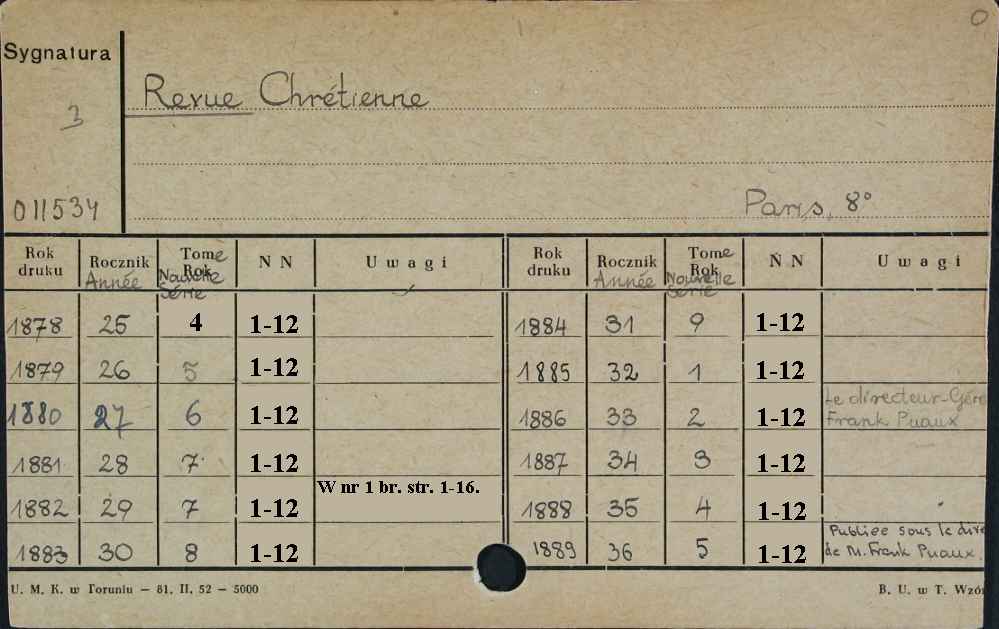 0
Sygnatura
3
Revue Chrétienne
011534
Paris, 8°
Rok druku Rocznik Année Tome Rok Nouvelle Série N N Uwagi Rok druku Rocznik Année Tome Rok Nouvelle Série N N Uwagi
1878 25 4 1-12 1884 31 9 1-12
1879 26 5 1-12 1885 32 1 1-12
1880 27 6 1-12 1886 33 2 1-12 Le directeur-Gére Frank Puaux
1881 28 7 1-12 1887 34 3 1-12
1882 29 7 1-12 W nr 1 br. str. 1-16. 1888 35 4 1-12
1883 30 8 1-12 1889 36 5 1-12 Publiée sous le dire de M. Frank Puaux.
U. M. K. w Toruniu — 81. II. 52 — 5000
B. U. w T. Wzór